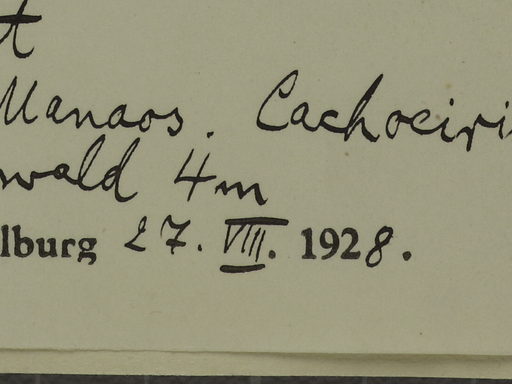 t
Manaos. Cachoeiri
wald 4m
lburg 27. VIII. 1928.